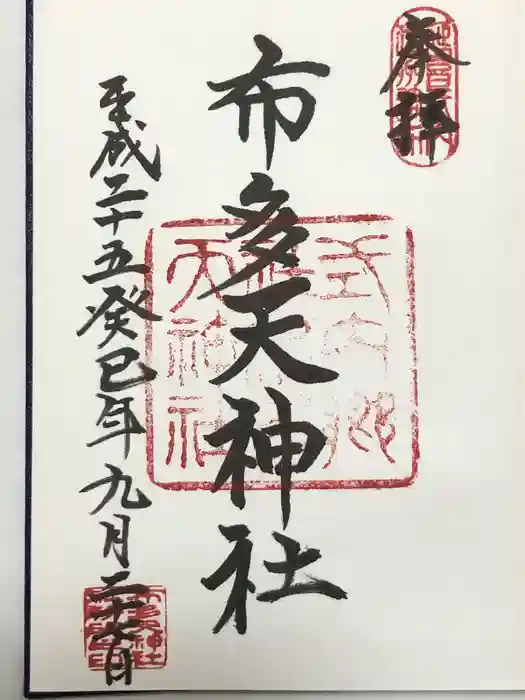 奉拝
布多天神社
平成二十五癸巳年九月二十六日